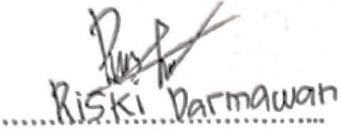 Riski Darmawan